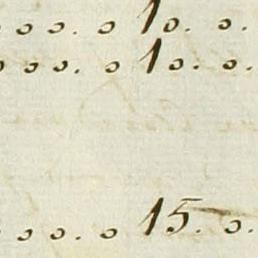 o o o. o 10. o.
o o o. o 10. o.
o o. o. o 15. o.